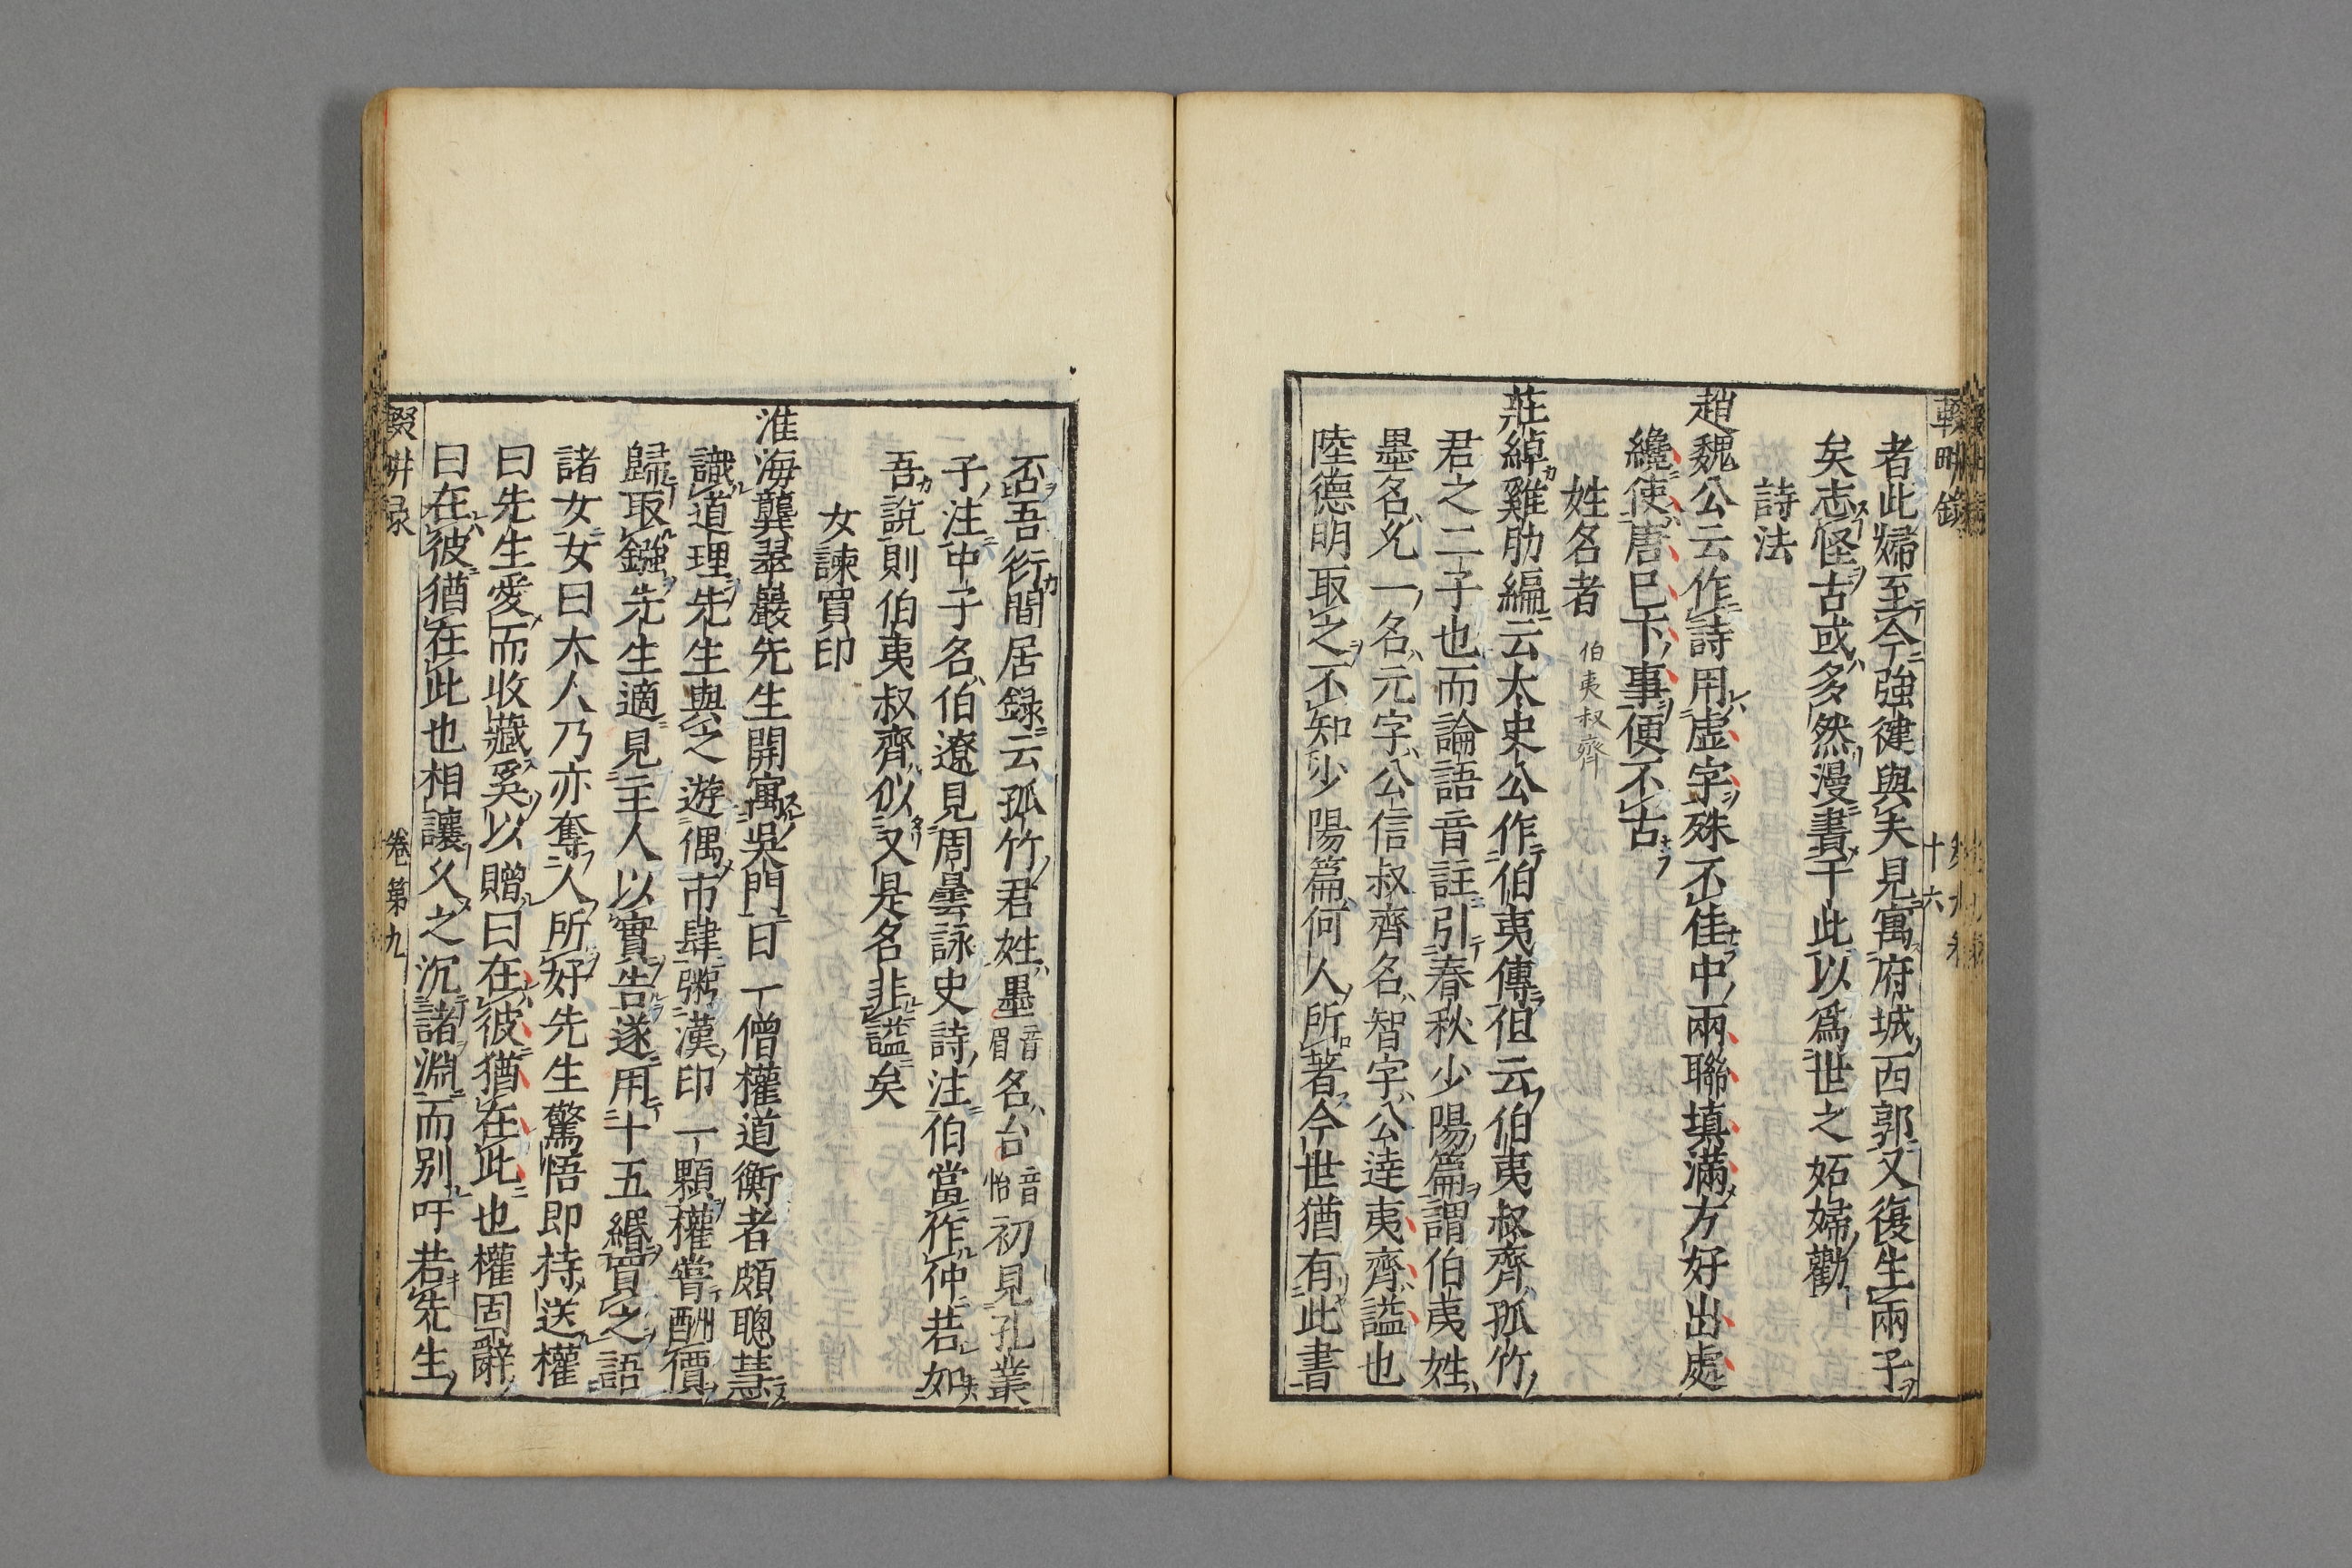 者此婦至今強健與夫見寓府城西郭又復生兩子
矣志怪古或多然漫書于此以爲世之妬婦勸
詩法
趙魏公云作詩用虛字殊不佳中兩聯填滿方好出處
纔使唐巳下事便不古
姓名者 伯夷叔齊
莊綽雞肋編云太史公作伯夷傳但云伯夷叔齊孤竹
君之二子也而論語音註引春秋少陽篇謂伯夷姓
墨名允一名元字公信叔齊名智字公達夷齊謚也
陸德明取之不知少陽篇何人所著今世猶有此書
否吾衍閒居録云孤竹君姓墨音眉名台音怡初見孔叢
子注中子名伯遼見周曇詠史詩注伯當作仲若如
吾說則伯夷叔齊似又是名非謚矣
女諫買印
淮海龔翠巖先生開寓吳門日一僧權道衡者頗聰慧
識道理先生與之遊偶市肆粥漢印一顆權嘗酬價
歸取鏹先生適見主人以實告遂用十五緡買之語
諸女女曰大人乃亦奪人所好先生驚悟即持送權
曰先生愛而收藏奚以贈曰在彼猶在此也權固辭
曰在彼猶在此也相讓久之沉諸淵而别吁若先生
輟畊录
卷第九
十六